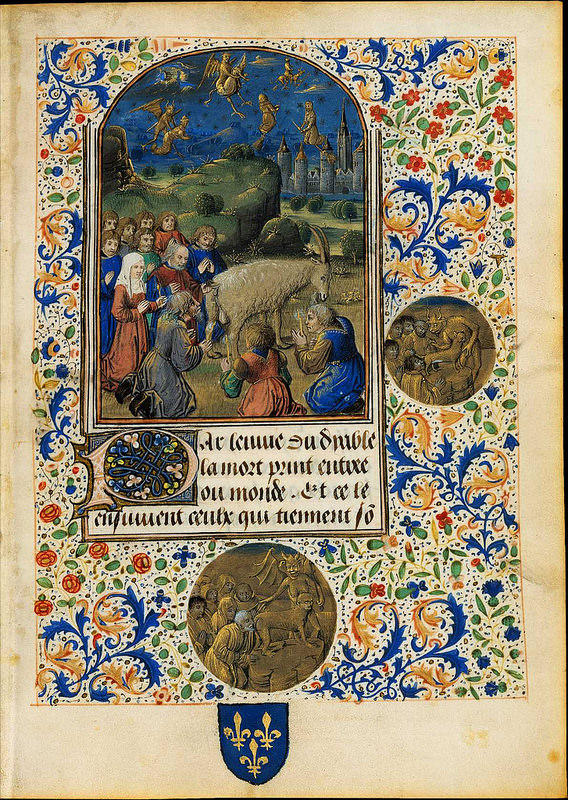 Par lenuie du dyable
la mort print entree
ou monde . Et ce le
ensuiuent ceulx qui tiennent so